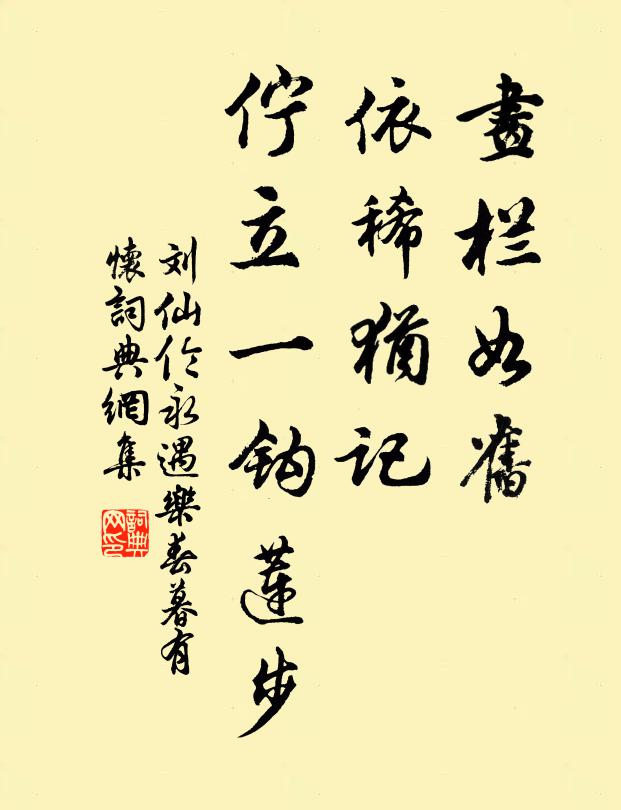 畫栏如舊
依稀猶記
佇立一鈎蓮步
刘仙伦永遇樂春暮有
懷詞典網集
詞典网印